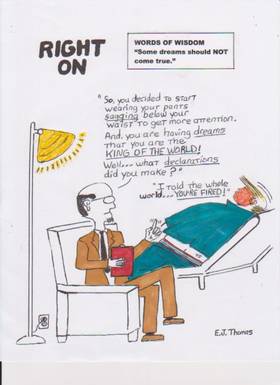 RIGHT
ON
WORDS OF WISDOM
"Some dreams should NOT
come true."
"So, you decided to start
wearing your pants
sagging below your
waist to get more attention.
And, you are having dreams
that you are the
KING OF THE WORLD!
Well... what declarations
did you make?"
"I told the whole
world... YOU'RE FIRED!"
E.J. Thomas